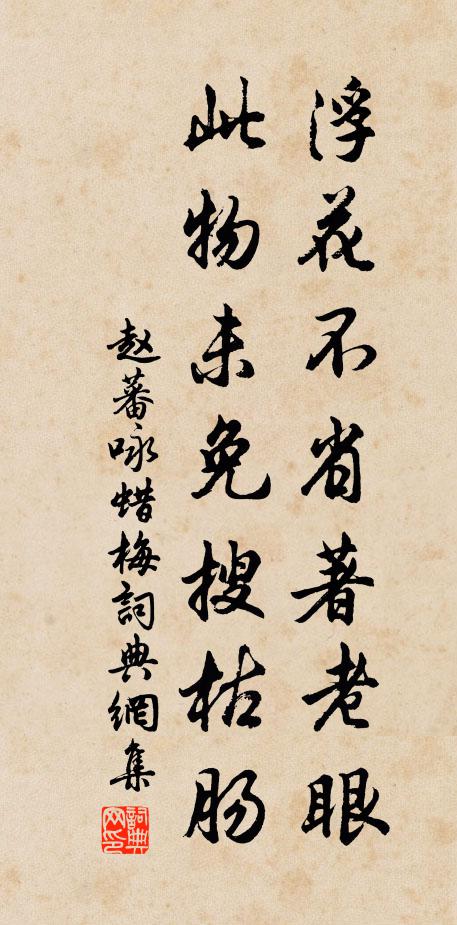 浮花不省著老眼
此物未免搜枯肠
赵蕃咏蜡梅詞典網集
詞典网印